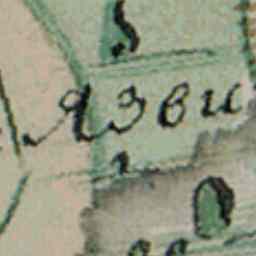 Язви